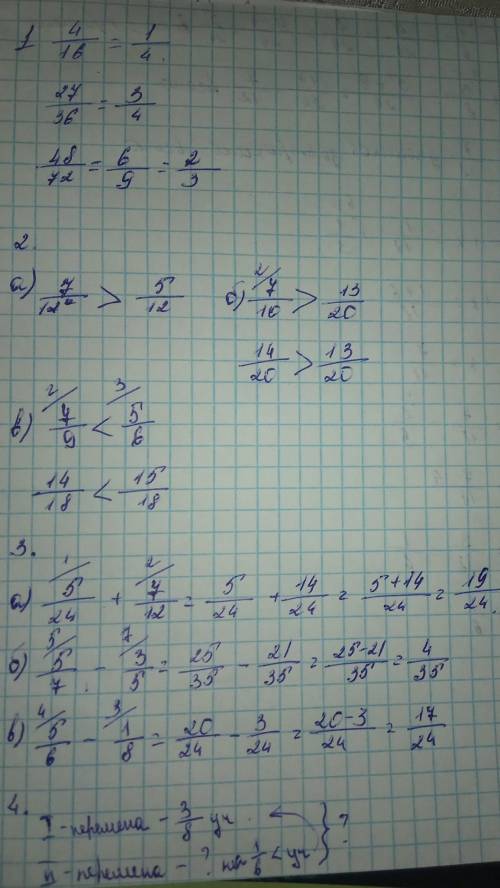 1 4/16 = 1/4.
27/36 = 3/4
48/72 = 6/9 = 2/3
2.
а) 7/12 > 5/12 б) 2/ 7/10 > 13/20
14/20 > 13/20
в) 2/ 7/9 < 3/ 5/6
14/18 < 15/18
3.
а) 1/ 5/24 + 2/ 7/12 = 5/24 + 14/24 = 5+14/24 = 19/24.
б) 5/ 5/7 - 7/ 3/5 = 25/35 - 21/35 = 25-21/35 = 4/35
в) 4/ 5/6 - 3/ 1/8 = 20/24 - 3/24 = 20-3/24 = 17/24
4.
I - перемена - 3/8 уч. } ?
II - перемена - ? на 1/6 < уч